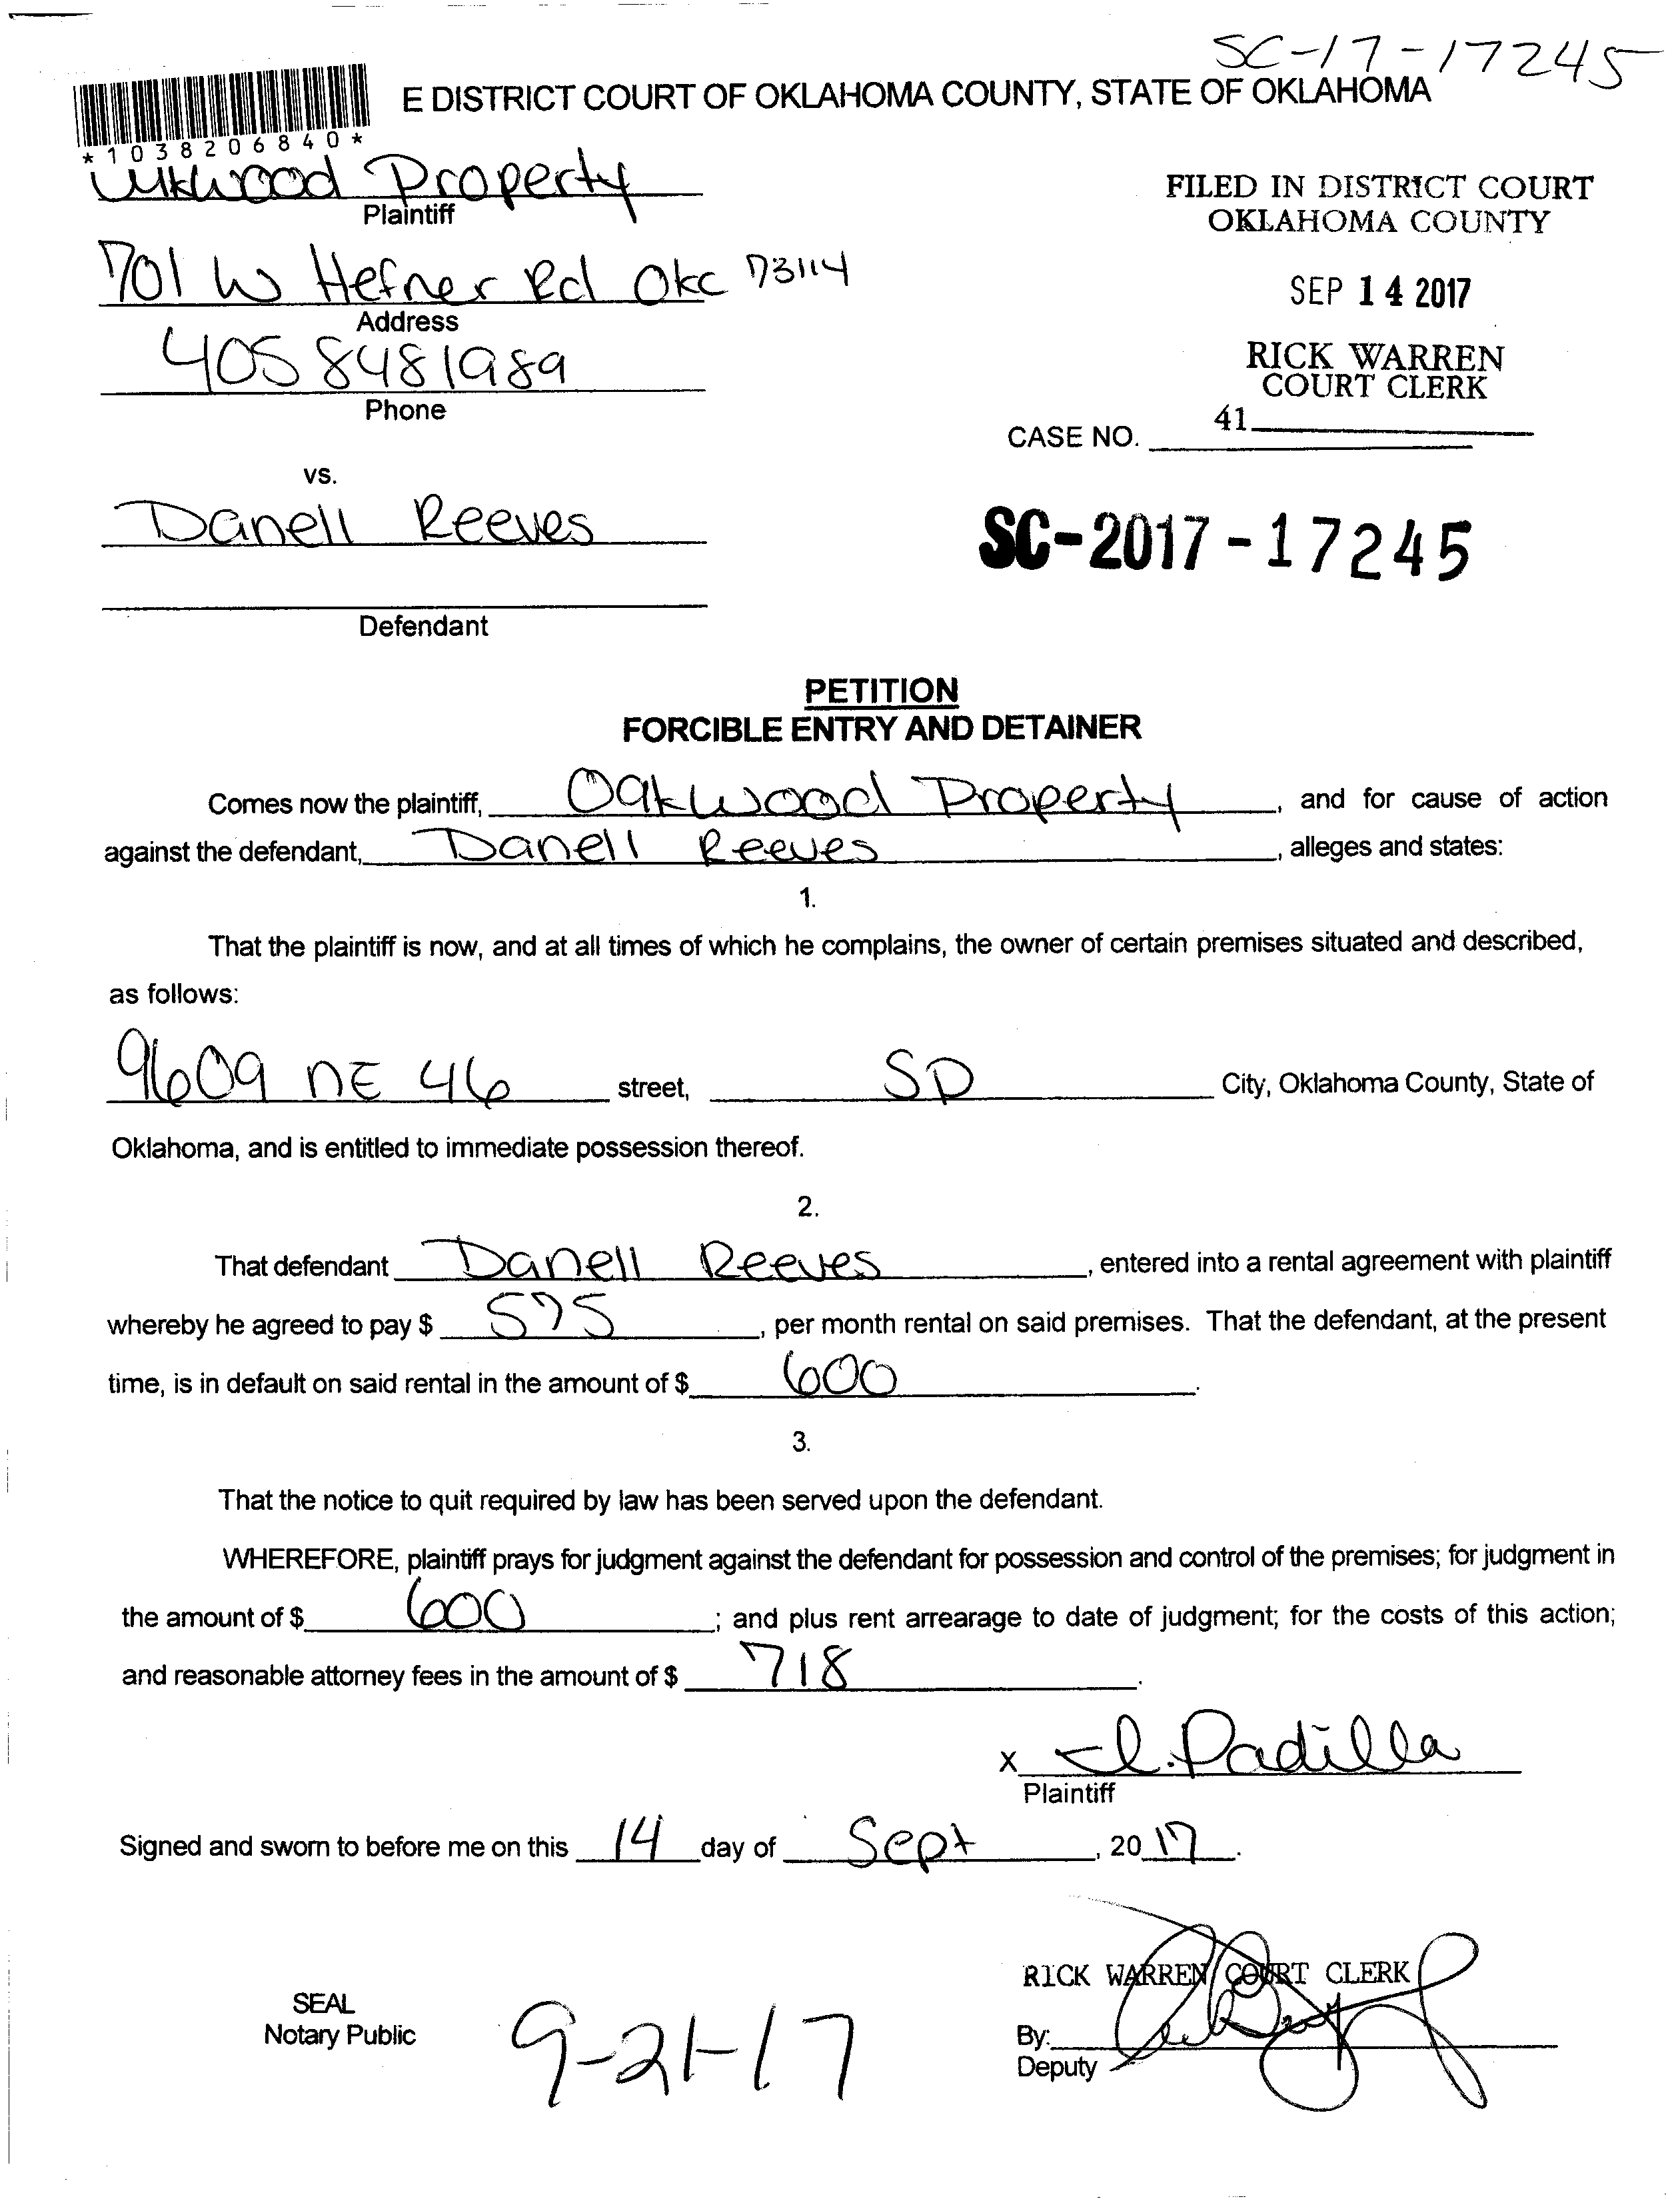 SC-17-17245
E DISTRICT COURT OF OKLAHOMA COUNTY, STATE OF OKLAHOMA
*1038206840*
Property
Plaintiff
FILED IN DISTRICT COURT
OKLAHOMA COUNTY
701 W Hefner Rd Okc 73114
Address
SEP 14 2017
4058481989
Phone
RICK WARREN
COURT CLERK
41
CASE NO.
vs.
Danell Reeves
SC-2017-17245
Defendant
PETITION
FORCIBLE ENTRY AND DETAINER
Comes now the plaintiff, Oakwood Property, and for cause of action
against the defendant, Danell Reeves, alleges and states:
1.
That the plaintiff is now, and at all times of which he complains, the owner of certain premises situated and described,
as follows:
9609 NE 46 street, SD City, Oklahoma County, State of
Oklahoma, and is entitled to immediate possession thereof.
2.
That defendant Danell Reeves, entered into a rental agreement with plaintiff
whereby he agreed to pay $ 575, per month rental on said premises. That the defendant, at the present
time, is in default on said rental in the amount of $ 600.
3.
That the notice to quit required by law has been served upon the defendant.
WHEREFORE, plaintiff prays for judgment against the defendant for possession and control of the premises; for judgment in
the amount of $ 600; and plus rent arrearage to date of judgment; for the costs of this action;
and reasonable attorney fees in the amount of $ 718.
X Padilla
Plaintiff
Signed and sworn to before me on this 14 day of Sept, 2017.
RICK WARREN COURT CLERK
SEAL
Notary Public
9-21-17
By:
Deputy